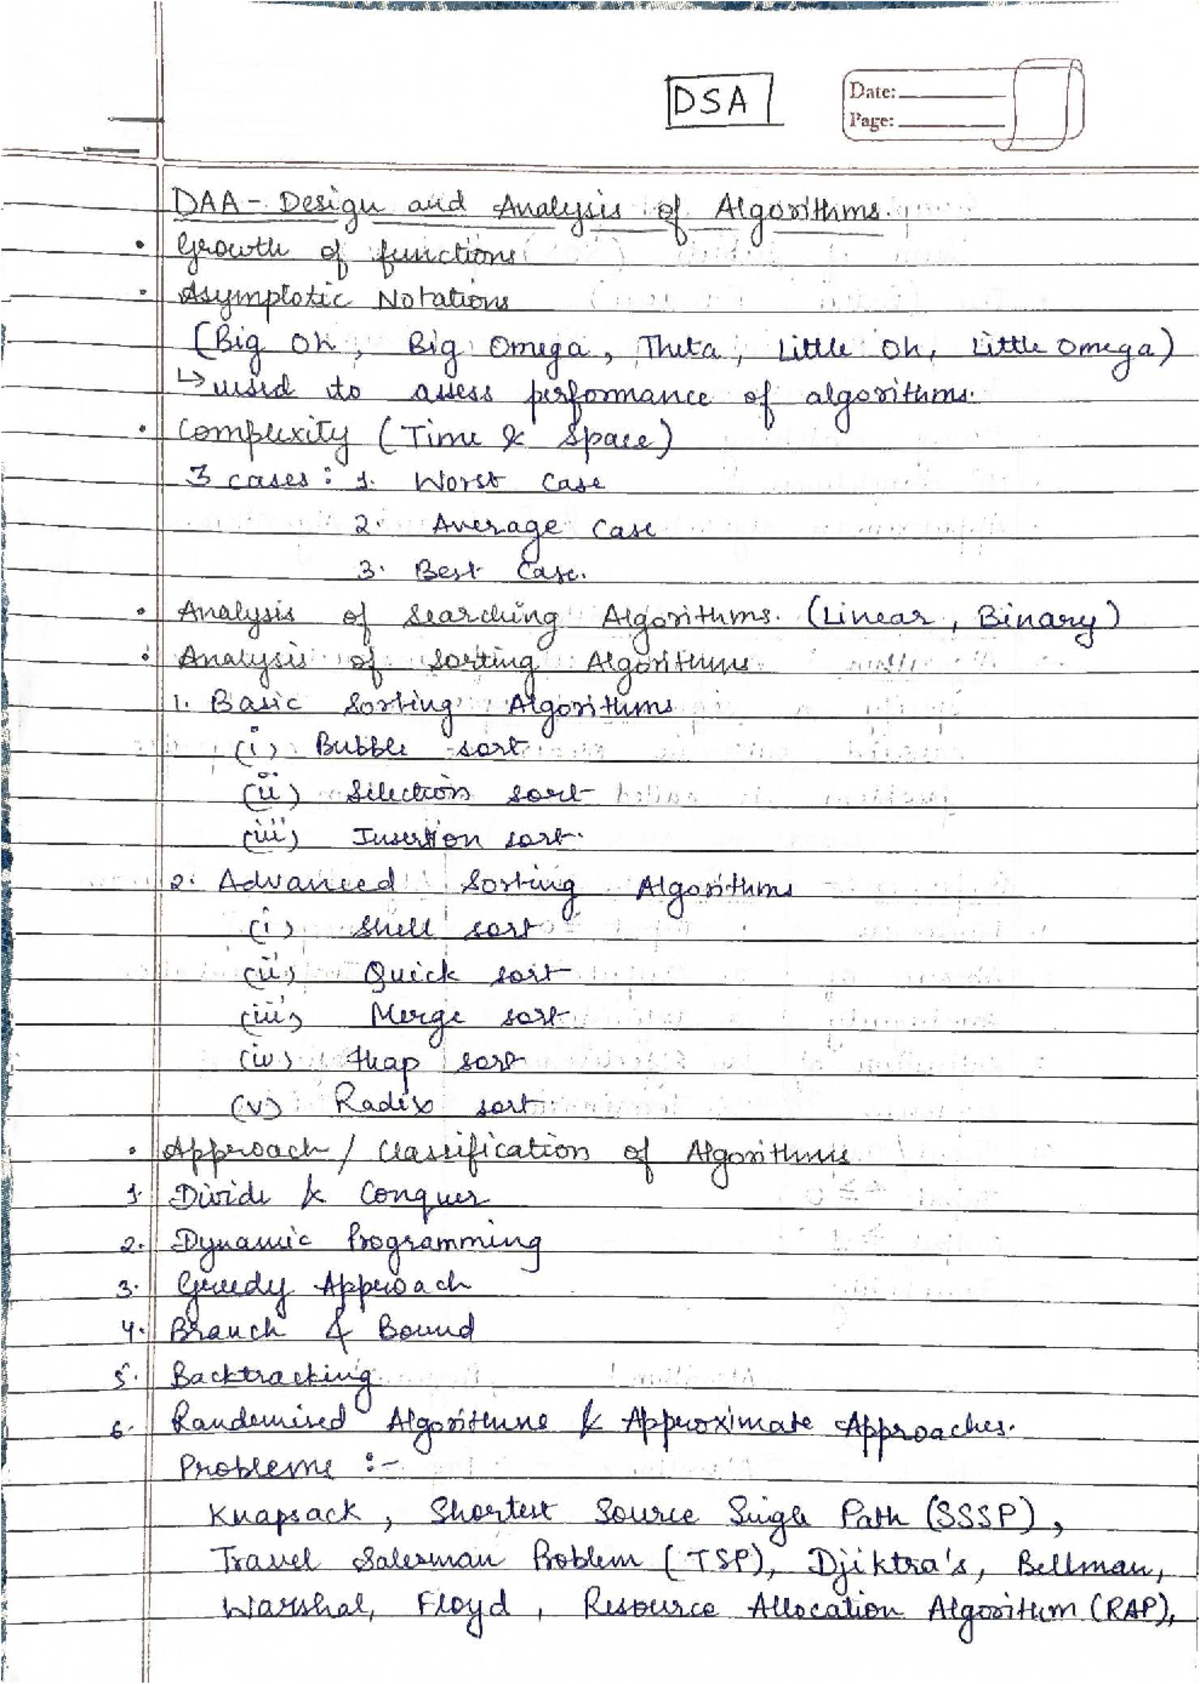 DSA
Date:
Page:
DAA - Design and Analysis of Algorithms.
• Growth of functions
• Asymptotic Notations
(Big Oh, Big Omega, Theta, Little Oh, Little Omega)
↳ used to assess performance of algorithms.
• Complexity (Time & Space)
3 cases: 1. Worst Case
2. Average Case
3. Best Case.
• Analysis of Searching Algorithms. (Linear, Binary)
• Analysis of Sorting Algorithms
1. Basic Sorting Algorithms
(i) Bubble sort
(ii) Selection sort
(iii) Insertion sort.
2. Advanced Sorting Algorithms
(i) Shell sort
(ii) Quick sort
(iii) Merge sort
(iv) Heap sort
(v) Radix sort
• Approach / Classification of Algorithms
1. Divide & Conquer
2. Dynamic Programming
3. Greedy Approach
4. Branch & Bound
5. Backtracking
6. Randomised Algorithms & Approximate Approaches.
Problems :-
Knapsack, Shortest Source Single Path (SSSP),
Travel Salesman Problem (TSP), Djiktra's, Bellman,
Warshal, Floyd, Resource Allocation Algorithm (RAP),